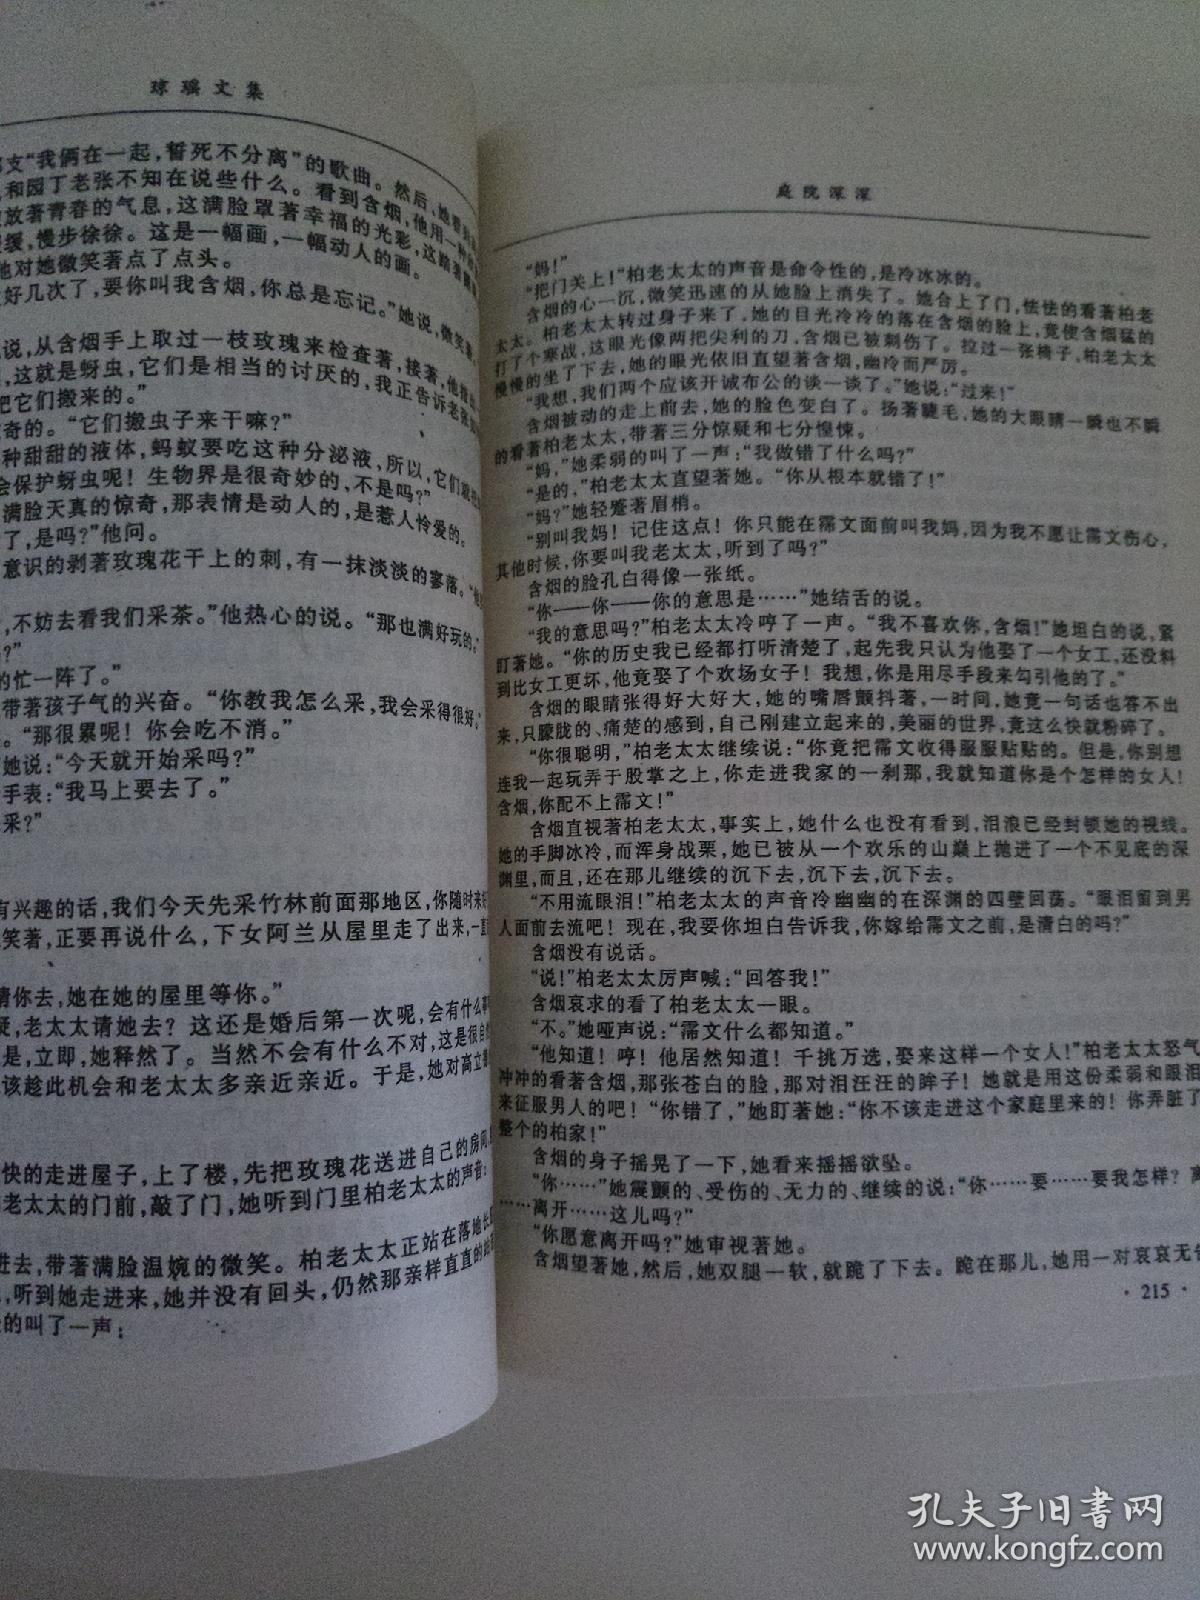 琼瑶文集
支“我俩在一起,誓死不分离”的歌曲。然后,她看到
和园丁老张不知在说些什么。看到含烟,他用一种
放著青春的气息,这满脸罩著幸福的光彩,这踏著
缓,慢步徐徐。这是一幅画,一幅动人的画。
他对她微笑著点了点头。
好几次了,要你叫我含烟,你总是忘记。”她说,微笑著
说,从含烟手上取过一枝玫瑰来检查著,接著,他指
,这就是蚜虫,它们是相当的讨厌的,我正告诉老张
把它们搬来的。”
奇的。“它们搬虫子来干嘛?”
种甜甜的液体,蚂蚁要吃这种分泌液,所以,它们就
会保护蚜虫呢!生物界是很奇妙的,不是吗?”
满脸天真的惊奇,那表情是动人的,是惹人怜爱的。
了,是吗?”他问。
意识的剥著玫瑰花干上的刺,有一抹淡淡的寥落。“
,不妨去看我们采茶。”他热心的说。“那也满好玩的。”
?”
的忙一阵了。”
带著孩子气的兴奋。“你教我怎么采,我会采得很好。”
。“那很累呢!你会吃不消。”
她说:“今天就开始采吗?”
手表:“我马上要去了。”
采?”
有兴趣的话,我们今天先采竹林前面那地区,你随时来
笑著,正要再说什么,下女阿兰从屋里走了出来,一直
请你去,她在她的屋里等你。”
疑,老太太请她去?这还是婚后第一次呢,会有什么事
是,立即,她释然了。当然不会有什么不对,这是很自
该趁此机会和老太太多亲近亲近。于是,她对高立
快的走进屋子,上了楼,先把玫瑰花送进自己的房间
老太太的门前,敲了门,她听到门里柏老太太的声音:
进去,带著满脸温婉的微笑。柏老太太正站在落地长
,听到她走进来,她并没有回头,仍然那亲样直直的
的叫了一声:
庭院深深
“妈!”
“把门关上!”柏老太太的声音是命令性的,是冷冰冰的。
含烟的心一沉,微笑迅速的从她脸上消失了。她合上了门,怯怯的看著柏老
太太。柏老太太转过身子来了,她的目光冷冷的落在含烟的脸上,竟使含烟猛的
打了个寒战,这眼光像两把尖利的刀,含烟已被刺伤了。拉过一张椅子,柏老太太
慢慢的坐了下去,她的眼光依旧直望著含烟,幽冷而严厉。
“我想,我们两个应该开诚布公的谈一谈了。”她说:“过来!”
含烟被动的走上前去,她的脸色变白了。扬著睫毛,她的大眼睛一瞬也不瞬
的看著柏老太太,带著三分惊疑和七分惶悚。
“妈,”她柔弱的叫了一声:“我做错了什么吗?”
“是的,”柏老太太直望著她。“你从根本就错了!”
“妈?”她轻蹙著眉梢。
“别叫我妈!记住这点!你只能在霈文面前叫我妈,因为我不愿让霈文伤心,
其他时候,你要叫我老太太,听到了吗?”
含烟的脸孔白得像一张纸。
“你——你——你的意思是……”她结舌的说。
“我的意思吗?”柏老太太冷哼了一声。“我不喜欢你,含烟!”她坦白的说,紧
盯著她。“你的历史我已经都打听清楚了,起先我只认为他娶了一个女工,还没料
到比女工更坏,他竟娶了个欢场女子!我想,你是用尽手段来勾引他的了。”
含烟的眼睛张得好大好大,她的嘴唇颤抖著,一时间,她竟一句话也答不出
来,只朦胧的、痛楚的感到,自己刚建立起来的,美丽的世界,竟这么快就粉碎了。
“你很聪明,”柏老太太继续说:“你竟把霈文收得服服贴贴的。但是,你别想
连我一起玩弄于股掌之上,你走进我家的一刹那,我就知道你是个怎样的女人!
含烟,你配不上霈文!”
含烟直视著柏老太太,事实上,她什么也没有看到,泪浪已经封锁她的视线。
她的手脚冰冷,而浑身战栗,她已被从一个欢乐的山巅上抛进了一个不见底的深
渊里,而且,还在那儿继续的沉下去,沉下去,沉下去。
“不用流眼泪!”柏老太太的声音冷幽幽的在深渊的四壁回荡。“眼泪留到男
人面前去流吧!现在,我要你坦白告诉我,你嫁给霈文之前,是清白的吗?”
含烟没有说话。
“说!”柏老太太厉声喊:“回答我!”
含烟哀求的看了柏老太太一眼。
“不。”她哑声说:“霈文什么都知道。”
“他知道!哼!他居然知道!千挑万选,娶来这样一个女人!”柏老太太怒气
冲冲的看著含烟,那张苍白的脸,那对泪汪汪的眸子!她就是用这份柔弱和眼泪
来征服男人的吧!“你错了,”她盯著她:“你不该走进这个家庭里来的!你弄脏了
整个的柏家!”
含烟的身子摇晃了一下,她看来摇摇欲坠。
“你……”她震颤的、受伤的、无力的、继续的说:“你……要……要我怎样?离
……离开……这儿吗?”
“你愿意离开吗?”她审视著她。
含烟望著她,然后,她双腿一软,就跪了下去。跪在那儿,她用一对哀哀无
·215·
孔夫子旧书网
www.kongfz.com